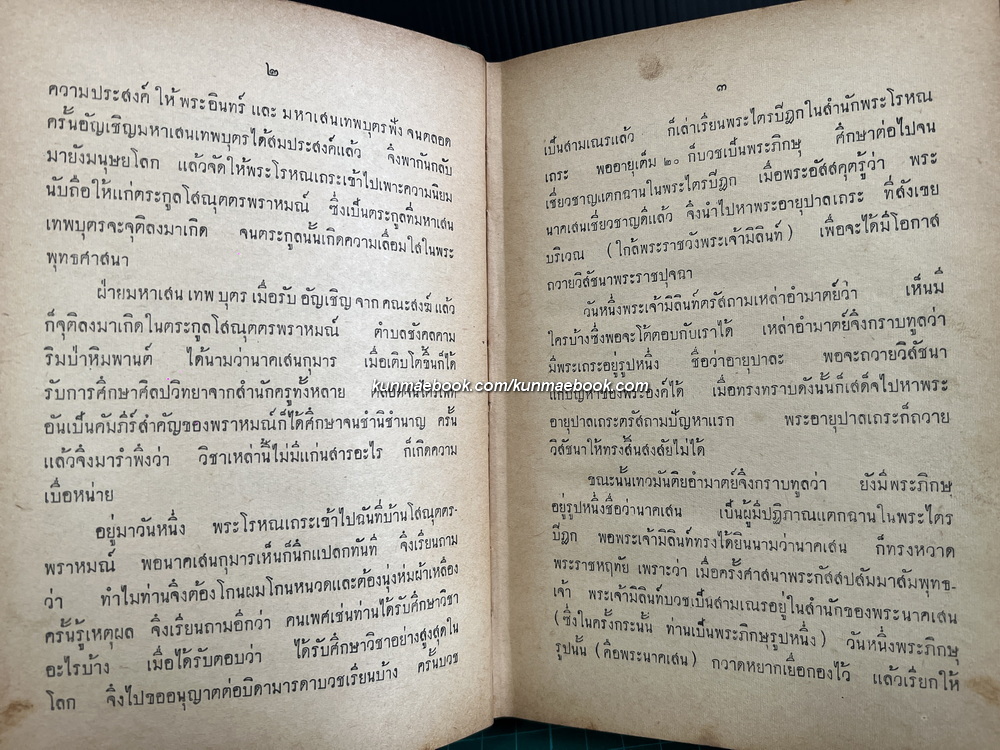 ๒
ความประสงค์ ให้ พระอินทร์ และ มหาเสนเทพบุตรฟัง จนตลอด
ครั้นอัญเชิญมหาเสนเทพบุตรได้สมประสงค์แล้ว จึงพากันกลับ
มายังมนุษยโลก แล้วจัดให้พระโรหณเถระเข้าไปเพาะความนิยม
นับถือให้แก่ตระกูลโสณุตตรพราหมณ์ ซึ่งเป็นตระกูลที่มหาเสน
เทพบุตรจะจุติลงมาเกิด จนตระกูลนั้นเกิดความเลื่อมใสในพระ
พุทธศาสนา
ฝ่ายมหาเสน เทพ บุตร เมื่อรับ อัญเชิญ จาก คณะสงฆ์ แล้ว
ก็จุติลงมาเกิดในตระกูลโสณุตตรพราหมณ์ ตำบลชังคลคาม
ริมป่าหิมพานต์ ได้นามว่านาคเสนกุมาร เมื่อเติบโตขึ้นก็ได้
รับการศึกษาศิลปวิทยาจากสำนักครูทั้งหลาย ตลอดจนไตรเพท
อันเป็นคัมภีร์สำคัญของพราหมณ์ก็ได้ศึกษาจนชำนิชำนาญ ครั้น
แล้วจึงมารำพึงว่า วิชาเหล่านี้ไม่มีแก่นสารอะไร ก็เกิดความ
เบื่อหน่าย
อยู่มาวันหนึ่ง พระโรหณเถระเข้าไปฉันที่บ้านโสณุตตร-
พราหมณ์ พอนาคเสนกุมารเห็นก็นึกแปลกทันที จึงเรียนถาม
ว่า ทำไมท่านจึงต้องโกนผมโกนหนวดและต้องนุ่งห่มผ้าเหลือง
ครั้นรู้เหตุผล จึงเรียนถามอีกว่า คนเพศเช่นท่านได้รับศึกษาวิชา
อะไรบ้าง เมื่อได้รับตอบว่า ได้รับศึกษาวิชาอย่างสูงสุดใน
โลก จึงไปขออนุญาตต่อบิดามารดาบวชเรียนบ้าง ครั้นบวช
๓
เป็นสามเณรแล้ว ก็เล่าเรียนพระไตรปีฎกในสำนักพระโรหณ
เถระ พออายุเต็ม ๒๐ ก็บวชเป็นพระภิกษุ ศึกษาต่อไปจน
เชี่ยวชาญแตกฉานในพระไตรปีฎก เมื่อพระอัสสคุตรู้ว่า พระ
นาคเสนเชี่ยวชาญดีแล้ว จึงนำไปหาพระอายุปาลเถระ ที่สังเขย
บริเวณ (ใกล้พระราชวังพระเจ้ามิลินท์) เพื่อจะได้มีโอกาส
ถวายวิสัชนาพระราชปุจฉา
วันหนึ่งพระเจ้ามิลินท์ตรัสถามเหล่าอำมาตย์ว่า เห็นมี
ใครบ้างซึ่งพอจะโต้ตอบกับเราได้ เหล่าอำมาตย์จึงกราบทูลว่า
มีพระเถระอยู่รูปหนึ่ง ชื่อว่าอายุปาละ พอจะถวายวิสัชนา
แก้ปัญหาของพระองค์ได้ เมื่อทรงทราบดังนั้นก็เสด็จไปหาพระ
อายุปาลเถระตรัสถามปัญหาแรก พระอายุปาลเถระก็ถวาย
วิสัชนาให้ทรงสิ้นสงสัยไม่ได้
ขณะนั้นเทวมันติยอำมาตย์จึงกราบทูลว่า ยังมีพระภิกษุ
อยู่รูปหนึ่งชื่อว่านาคเสน เป็นผู้มีปฏิภาณแตกฉานในพระไตร
ปีฎก พอพระเจ้ามิลินท์ทรงได้ยินนามว่านาคเสน ก็ทรงหวาด
พระราชหฤทัย เพราะว่า เมื่อครั้งศาสนาพระกัสสปสัมมาสัมพุทธ-
เจ้า พระเจ้ามิลินท์บวชเป็นสามเณรอยู่ในสำนักของพระนาคเสน
(ซึ่งในครั้งกระนั้น ท่านเป็นพระภิกษุรูปหนึ่ง) วันหนึ่งพระภิกษุ
รูปนั้น (คือพระนาคเสน) กวาดหยากเยื่อกองไว้ แล้วเรียกให้
kunmaebook.com/kunmaebook.com